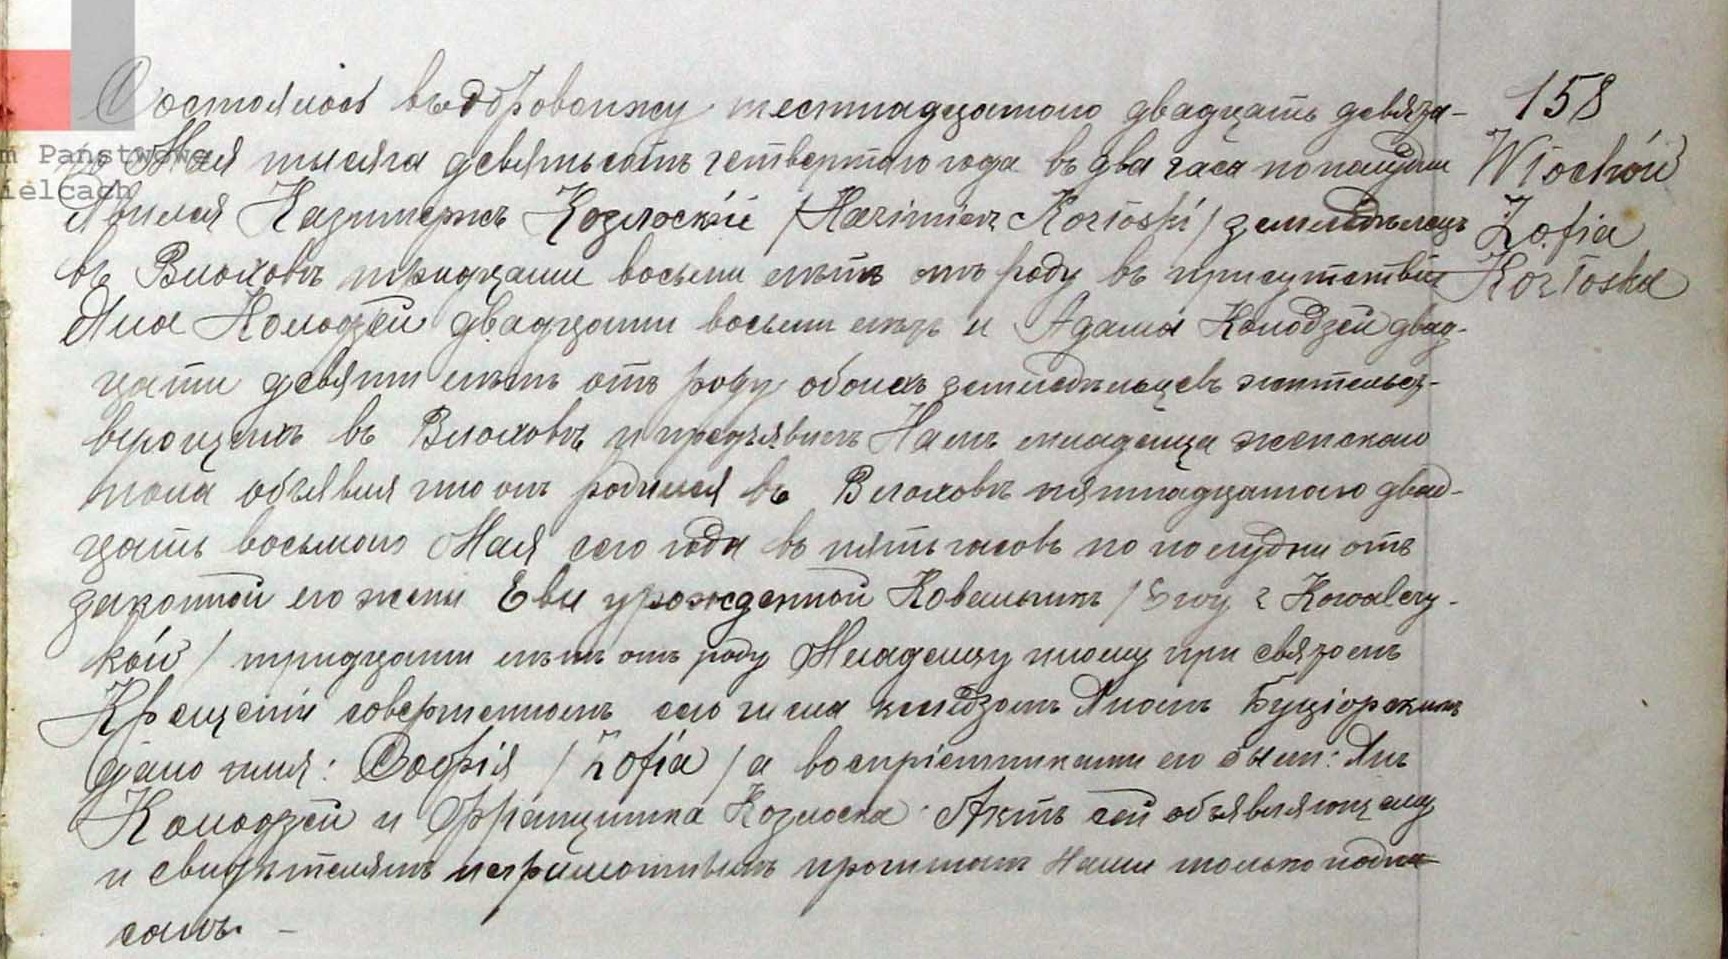 Состоялось въ Добровонжу шестнадцатого двадцать девята-
го Мая тысяча девятьсотъ четвертаго года въ два часа по полудни
Явился Казимержъ Козлоскій /Kazimierz Kozłoski/ земледѣлецъ
въ Влоховѣ тридцати восьми лѣтъ отъ роду въ присутствіи
Яна Колодзей двадцати восьми лѣтъ и Адама Колодзей двад-
цати девяти лѣтъ отъ роду обоихъ земледѣльцевъ жительст-
вующихъ въ Влоховѣ и предъявилъ Намъ младенца женскаго
пола объявляя что онъ родился въ Влоховѣ пятнадцатаго двад-
цать восьмаго Мая сего года въ пять часовъ по полудни отъ
законной его жены Евы урожденной Ковальчикъ /Ewy z Kowalczy-
ków/ тридцати лѣтъ отъ роду Младенцу этому при святомъ
Крещеніи совершенномъ сего числа ксендзомъ Яномъ
дано имя: Софія /Zofia/ а воспріемниками его были: Янъ
Колодзей и Францишка Козлоска. Актъ сей объявляющему
и свидѣтелямъ неграмотнымъ прочитанъ Нами только подпи-
санъ. –
158
Włochów
Zofia
Kozłoska
m Państwowe
ielcach